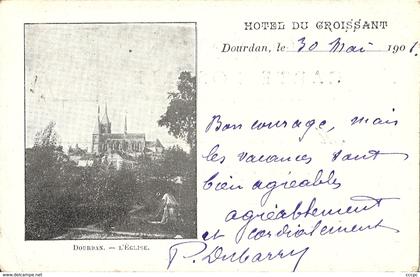 HOTEL DU CROISSANT
Dourdan, le 30 Mai 1901.
Bon courage, mais
les vacances sont
bien agréables
agréablement
et cordialement
P. Dubarry
DOURDAN. — L'ÉGLISE.